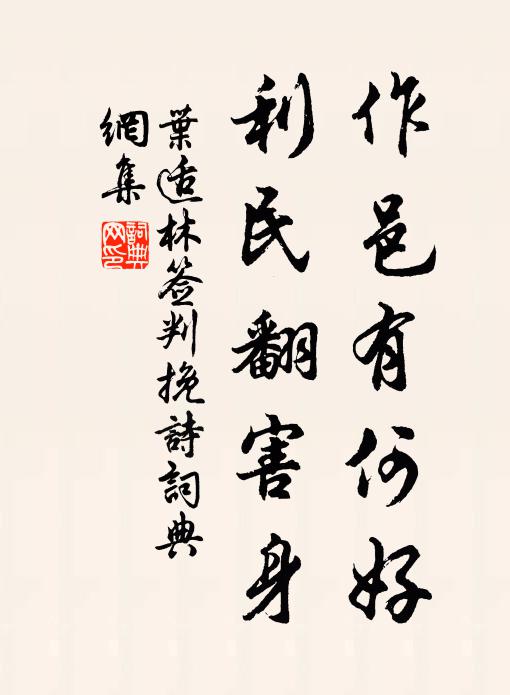 作邑有何好
利民翻害身
葉适林簽判挽詩詞典
網集
詞典網印